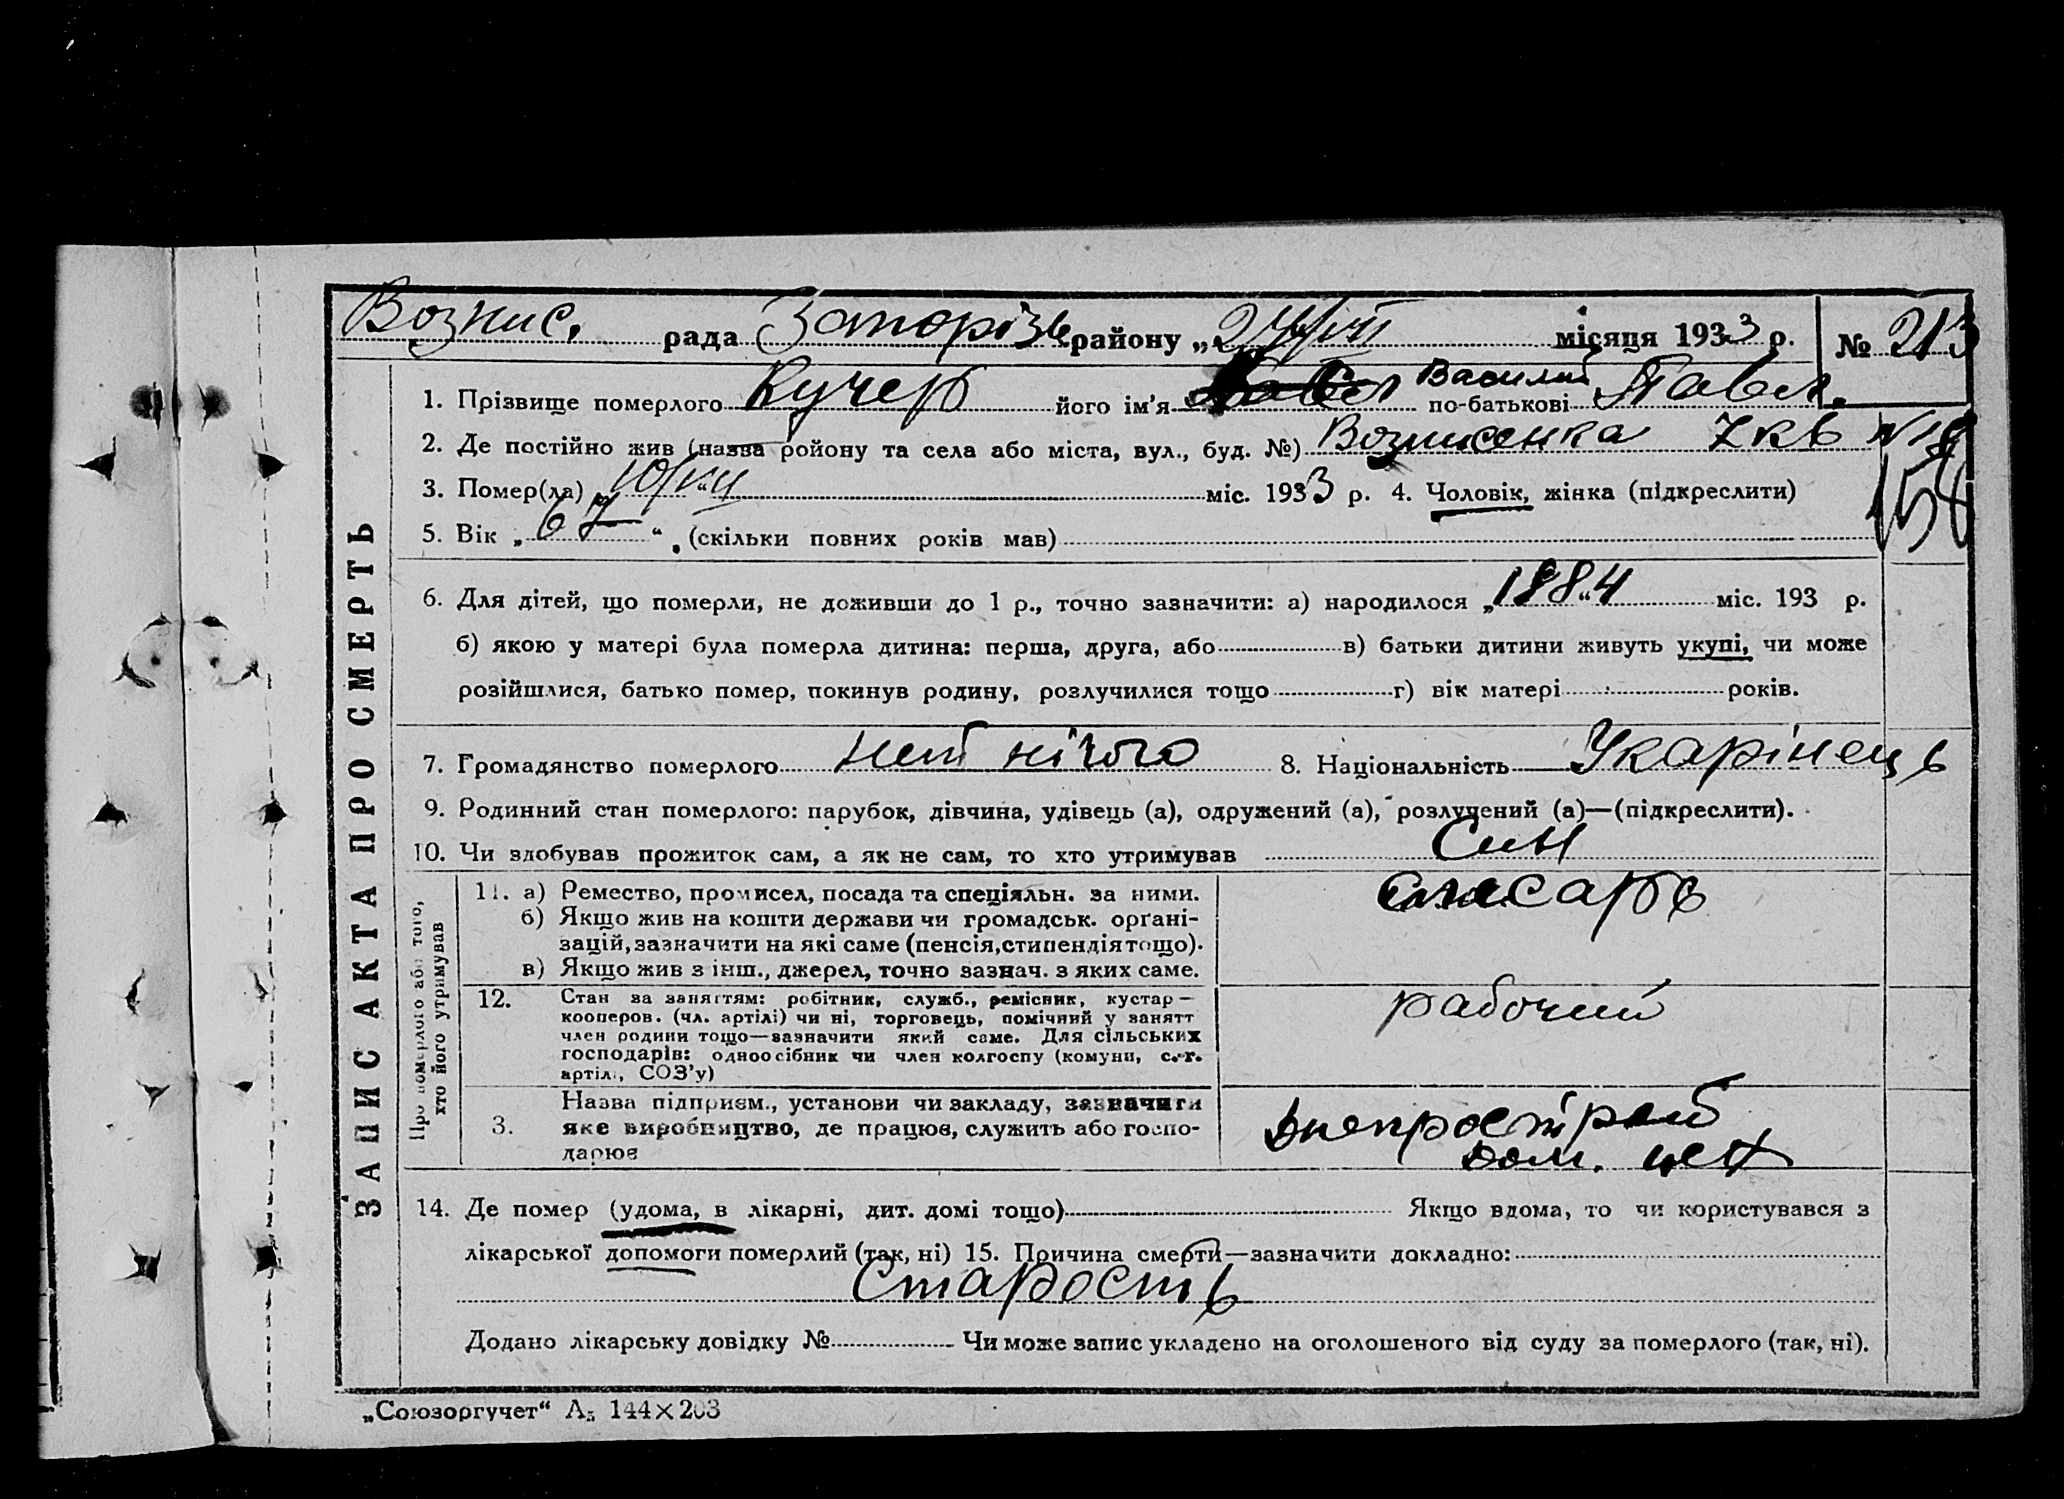 Вознис. рада Запорізь району „24/VII місяця 1933 р. № 213
1. Прізвище померлого Кучер його ім’я Василий по-батькові Павл.
2. Де постійно жив (назва ройону та села або міста, вул., буд. №) Вознисенка 7 кв N 18
158
3. Помер(ла) „10/VII“ міс. 1933 р. 4. Чоловік, жінка (підкреслити)
5. Вік „67“ (скільки повних років мав)
6. Для дітей, що померли, не доживши до 1 р., точно зазначити: а) народилося „1884“ міс. 193 р.
б) якою у матері була померла дитина: перша, друга, або в) батьки дитини живуть укупі, чи може
розійшлися, батько помер, покинув родину, розлучилися тощо г) вік матері років.
7. Громадянство померлого нет нічого 8. Національність Украрінець
9. Родинний стан померлого: парубок, дівчина, удівець (а), одружений (а), розлучений (а)—(підкреслити).
10. Чи здобував прожиток сам, а як не сам, то хто утримував Син
ЗАПИС АКТА ПРО СМЕРТЬ
Про померлого або того,
хто його утримував
11. а) Ремество, промисел, посада та спеціяльн. за ними. слесарь
б) Якщо жив на кошти держави чи громадськ. орґані-
зацій, зазначити на які саме (пенсія, стипендія тощо).
в) Якщо жив з інш., джерел, точно зазнач. з яких саме.
12. Стан за заняттям: робітник, служб., ремісник, кустар— рабочий
кооперов. (чл. артілі) чи ні, торговець, помічний у занятт
член родини тощо—зазначити який саме. Для сільських
господарів: одноосібник чи член колгоспу (комуни, с.-г.
артіл., СОЗ’у)
Назва підприєм., установи чи закладу, зазначити
3. яке виробництво, де працює, служить або госпо- Днепрострой
дарює Дом. цех
14. Де помер (удома, в лікарні, дит. домі тощо) Якщо вдома, то чи користувався з
лікарської допомоги померлий (так, ні) 15. Причина смерти—зазначити докладно:
Старость
Додано лікарську довідку № Чи може запис укладено на оголошеного від суду за померлого (так, ні).
„Союзоргучет“ А5 144×203